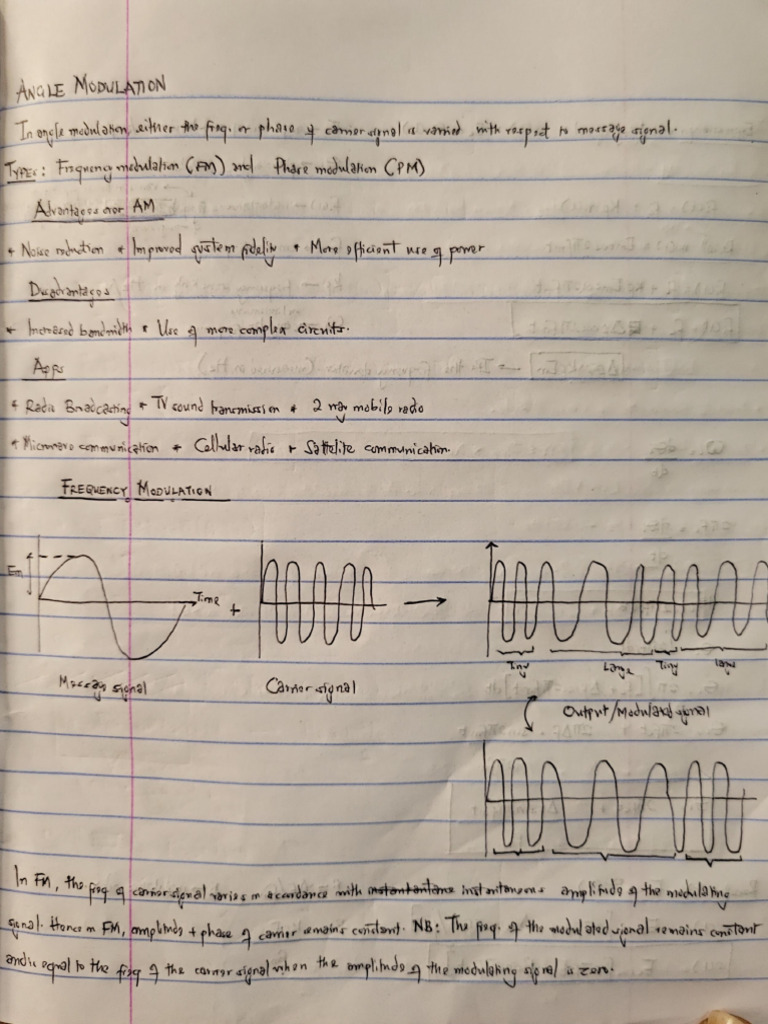 ANGLE MODULATION
In angle modulation, either the freq. or phase of carrier signal is varied with respect to message signal.
TYPES: Frequency modulation (FM) and Phase modulation (PM)
Advantages over AM
* Noise reduction * Improved system fidelity * More efficient use of power
Disadvantages
* Increased bandwidth * Use of more complex circuits.
Apps
* Radio Broadcasting * TV sound transmission * 2 way mobile radio
* Microwave communication * Cellular radio * Satellite communication.
FREQUENCY MODULATION
Em
Time
+
Tiny Large Tiny large
Message signal Carrier signal
Output/Modulated signal
In FM, the freq of carrier signal varies in accordance with instantaneous amplitude of the modulating
signal. Hence in FM, amplitude + phase of carrier remains constant. NB: The freq. of the modulated signal remains constant
and is equal to the freq of the carrier signal when the amplitude of the modulating signal is zero.